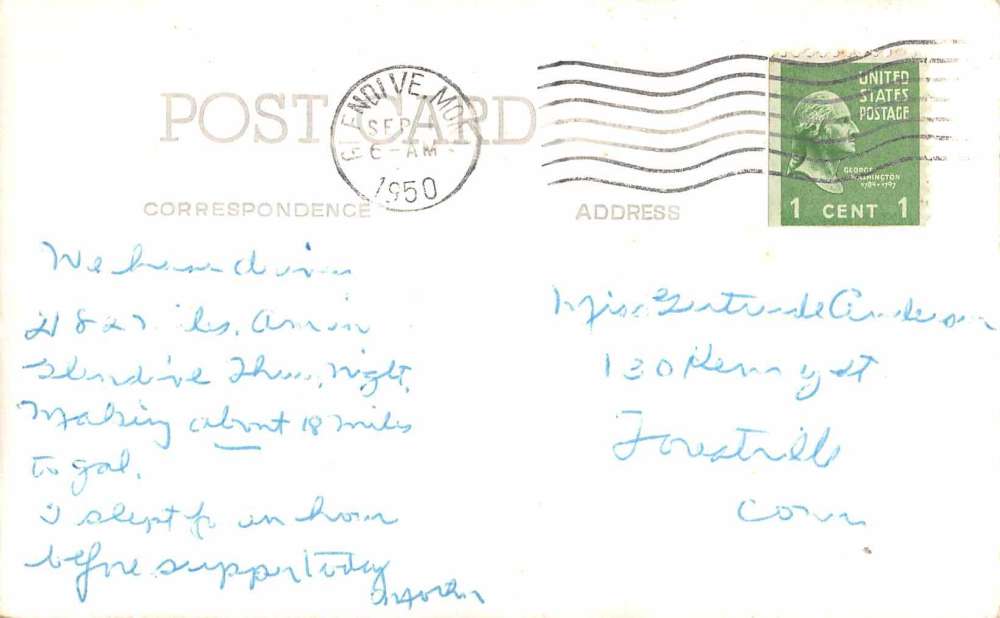 POST CARD
GLENDIVE, MONT.
SEP
6 - AM
1950
UNITED
STATES
POSTAGE
GEORGE
WASHINGTON
1789-1797
1 CENT 1
CORRESPONDENCE
ADDRESS
We have
miles. in
Glendive Thurs. Night,
Making about 18 miles
to gal.
I slept for an hour
before supper today
Mother
Miss Gertrude Anderson
130 St
Forestville
Conn